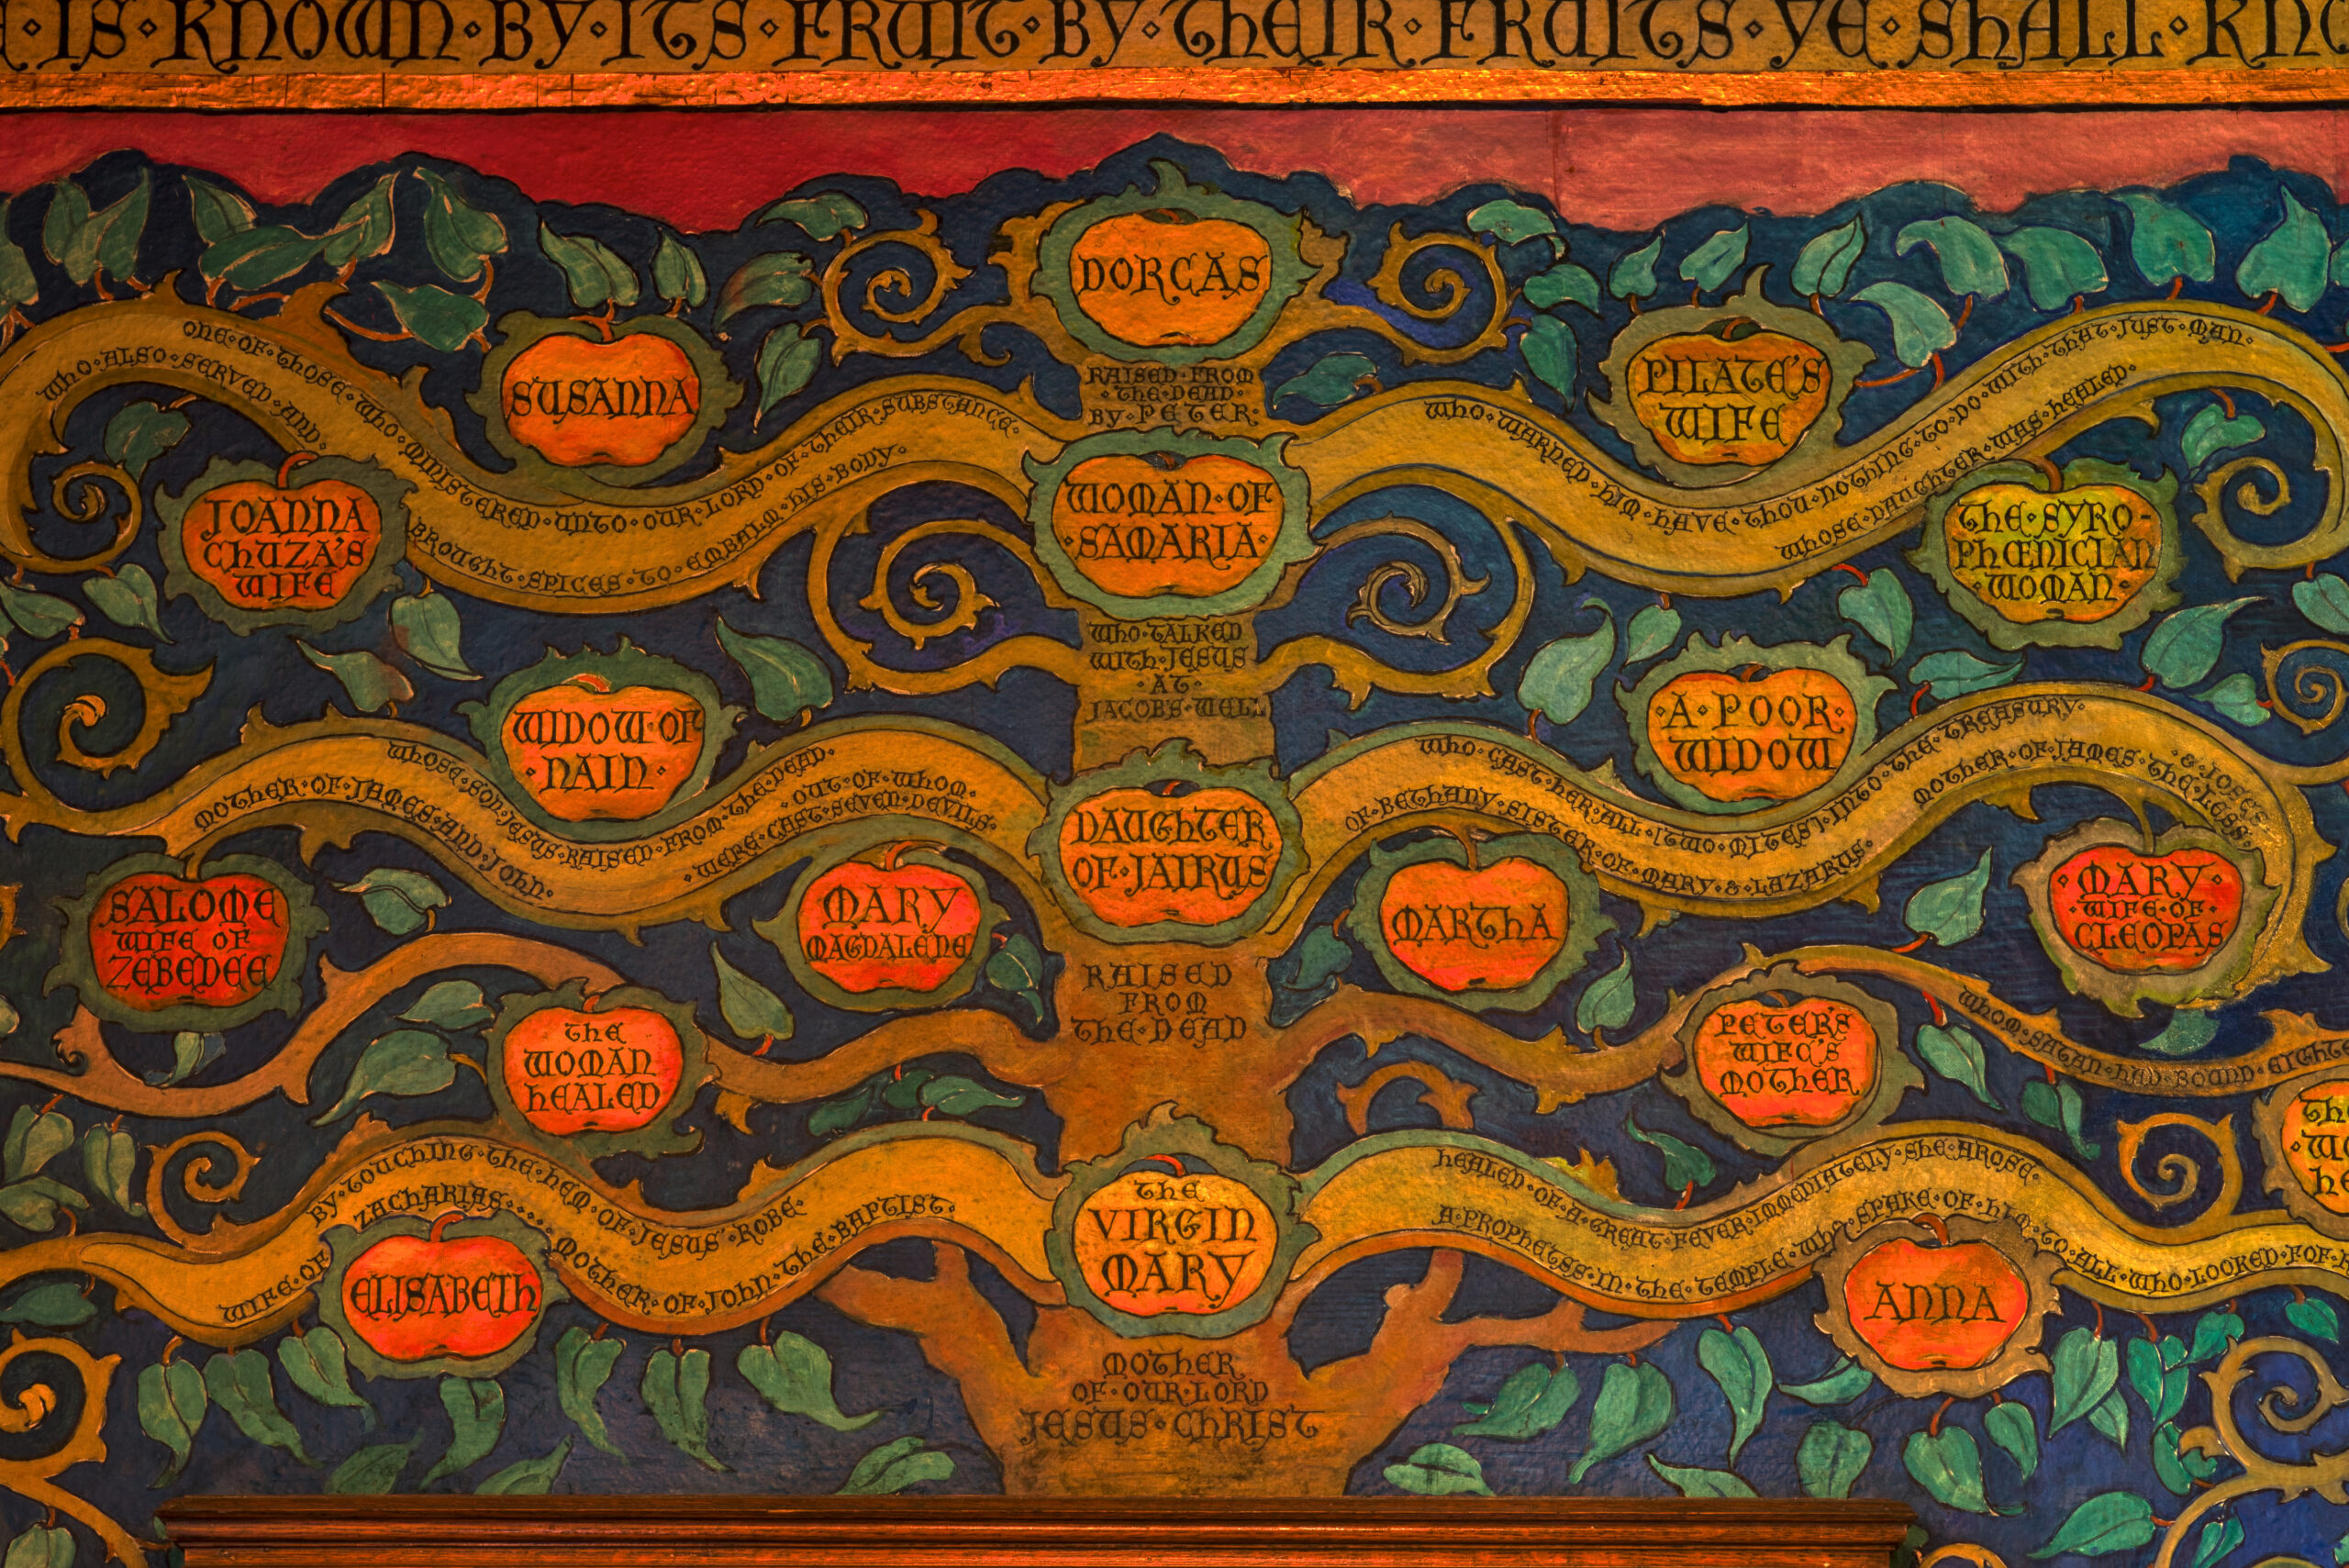 IS·KNOWN·BY·ITS·FRUIT·BY·THEIR·FRUITS·YE·SHALL·
DORCAS
RAISED·FROM
·THE·DEAD·
BY·PETER·
SUSANNA
ONE·OF·THOSE·WHO·MINISTERED·UNTO·OUR·LORD·OF·THEIR·SUBSTANCE·
PILATE'S
WIFE
WHO·WARNED·HIM·HAVE·THOU·NOTHING·TO·DO·WITH·THAT·JUST·MAN·
JOANNA
CHUZA'S
WIFE
WHO·ALSO·SERVED·AND·
BROUGHT·SPICES·TO·EMBALM·HIS·BODY·
WOMAN·OF
·SAMARIA·
WHO·TALKED
WITH·JESUS
·AT·
JACOBS·WELL
THE·SYRO-
PHŒNICIAN
·WOMAN·
WHOSE·DAUGHTER·WAS·HEALED·
WIDOW·OF
·NAIN·
WHOSE·SON·JESUS·RAISED·FROM·THE·DEAD·
·A·POOR·
WIDOW
WHO·CAST·HER·ALL·[TWO·MITES]·INTO·THE·TREASURY·
SALOME
WIFE OF
ZEBEDEE
MOTHER·OF·JAMES·AND·JOHN·
MARY
MAGDALENE
·OUT·OF·WHOM·
·WERE·CAST·SEVEN·DEVILS·
DAUGHTER
OF·JAIRUS
RAISED
FROM
THE·DEAD
MARTHA
OF·BETHANY·SISTER·OF·MARY·&·LAZARUS·
·MARY·
·WIFE·OF·
CLEOPAS
MOTHER·OF·JAMES·THE·LESS·
·&·JOSES·
THE
WOMAN
HEALED
BY·TOUCHING·THE·HEM·OF·JESUS'·ROBE·
PETER'S
WIFE'S
MOTHER
HEALED·OF·A·GREAT·FEVER·IMMEDIATELY·SHE·AROSE·
WHOM·SATAN·HAD·BOUND·
ELISABETH
WIFE·OF
ZACHARIAS.....
MOTHER·OF·JOHN·THE·BAPTIST·
THE
VIRGIN
MARY
MOTHER
OF·OUR·LORD
JESUS·CHRIST
ANNA
A·PROPHETESS·IN·THE·TEMPLE·WHO·SPAKE·OF·HIM·TO·ALL·WHO·LOOKED·FOR·